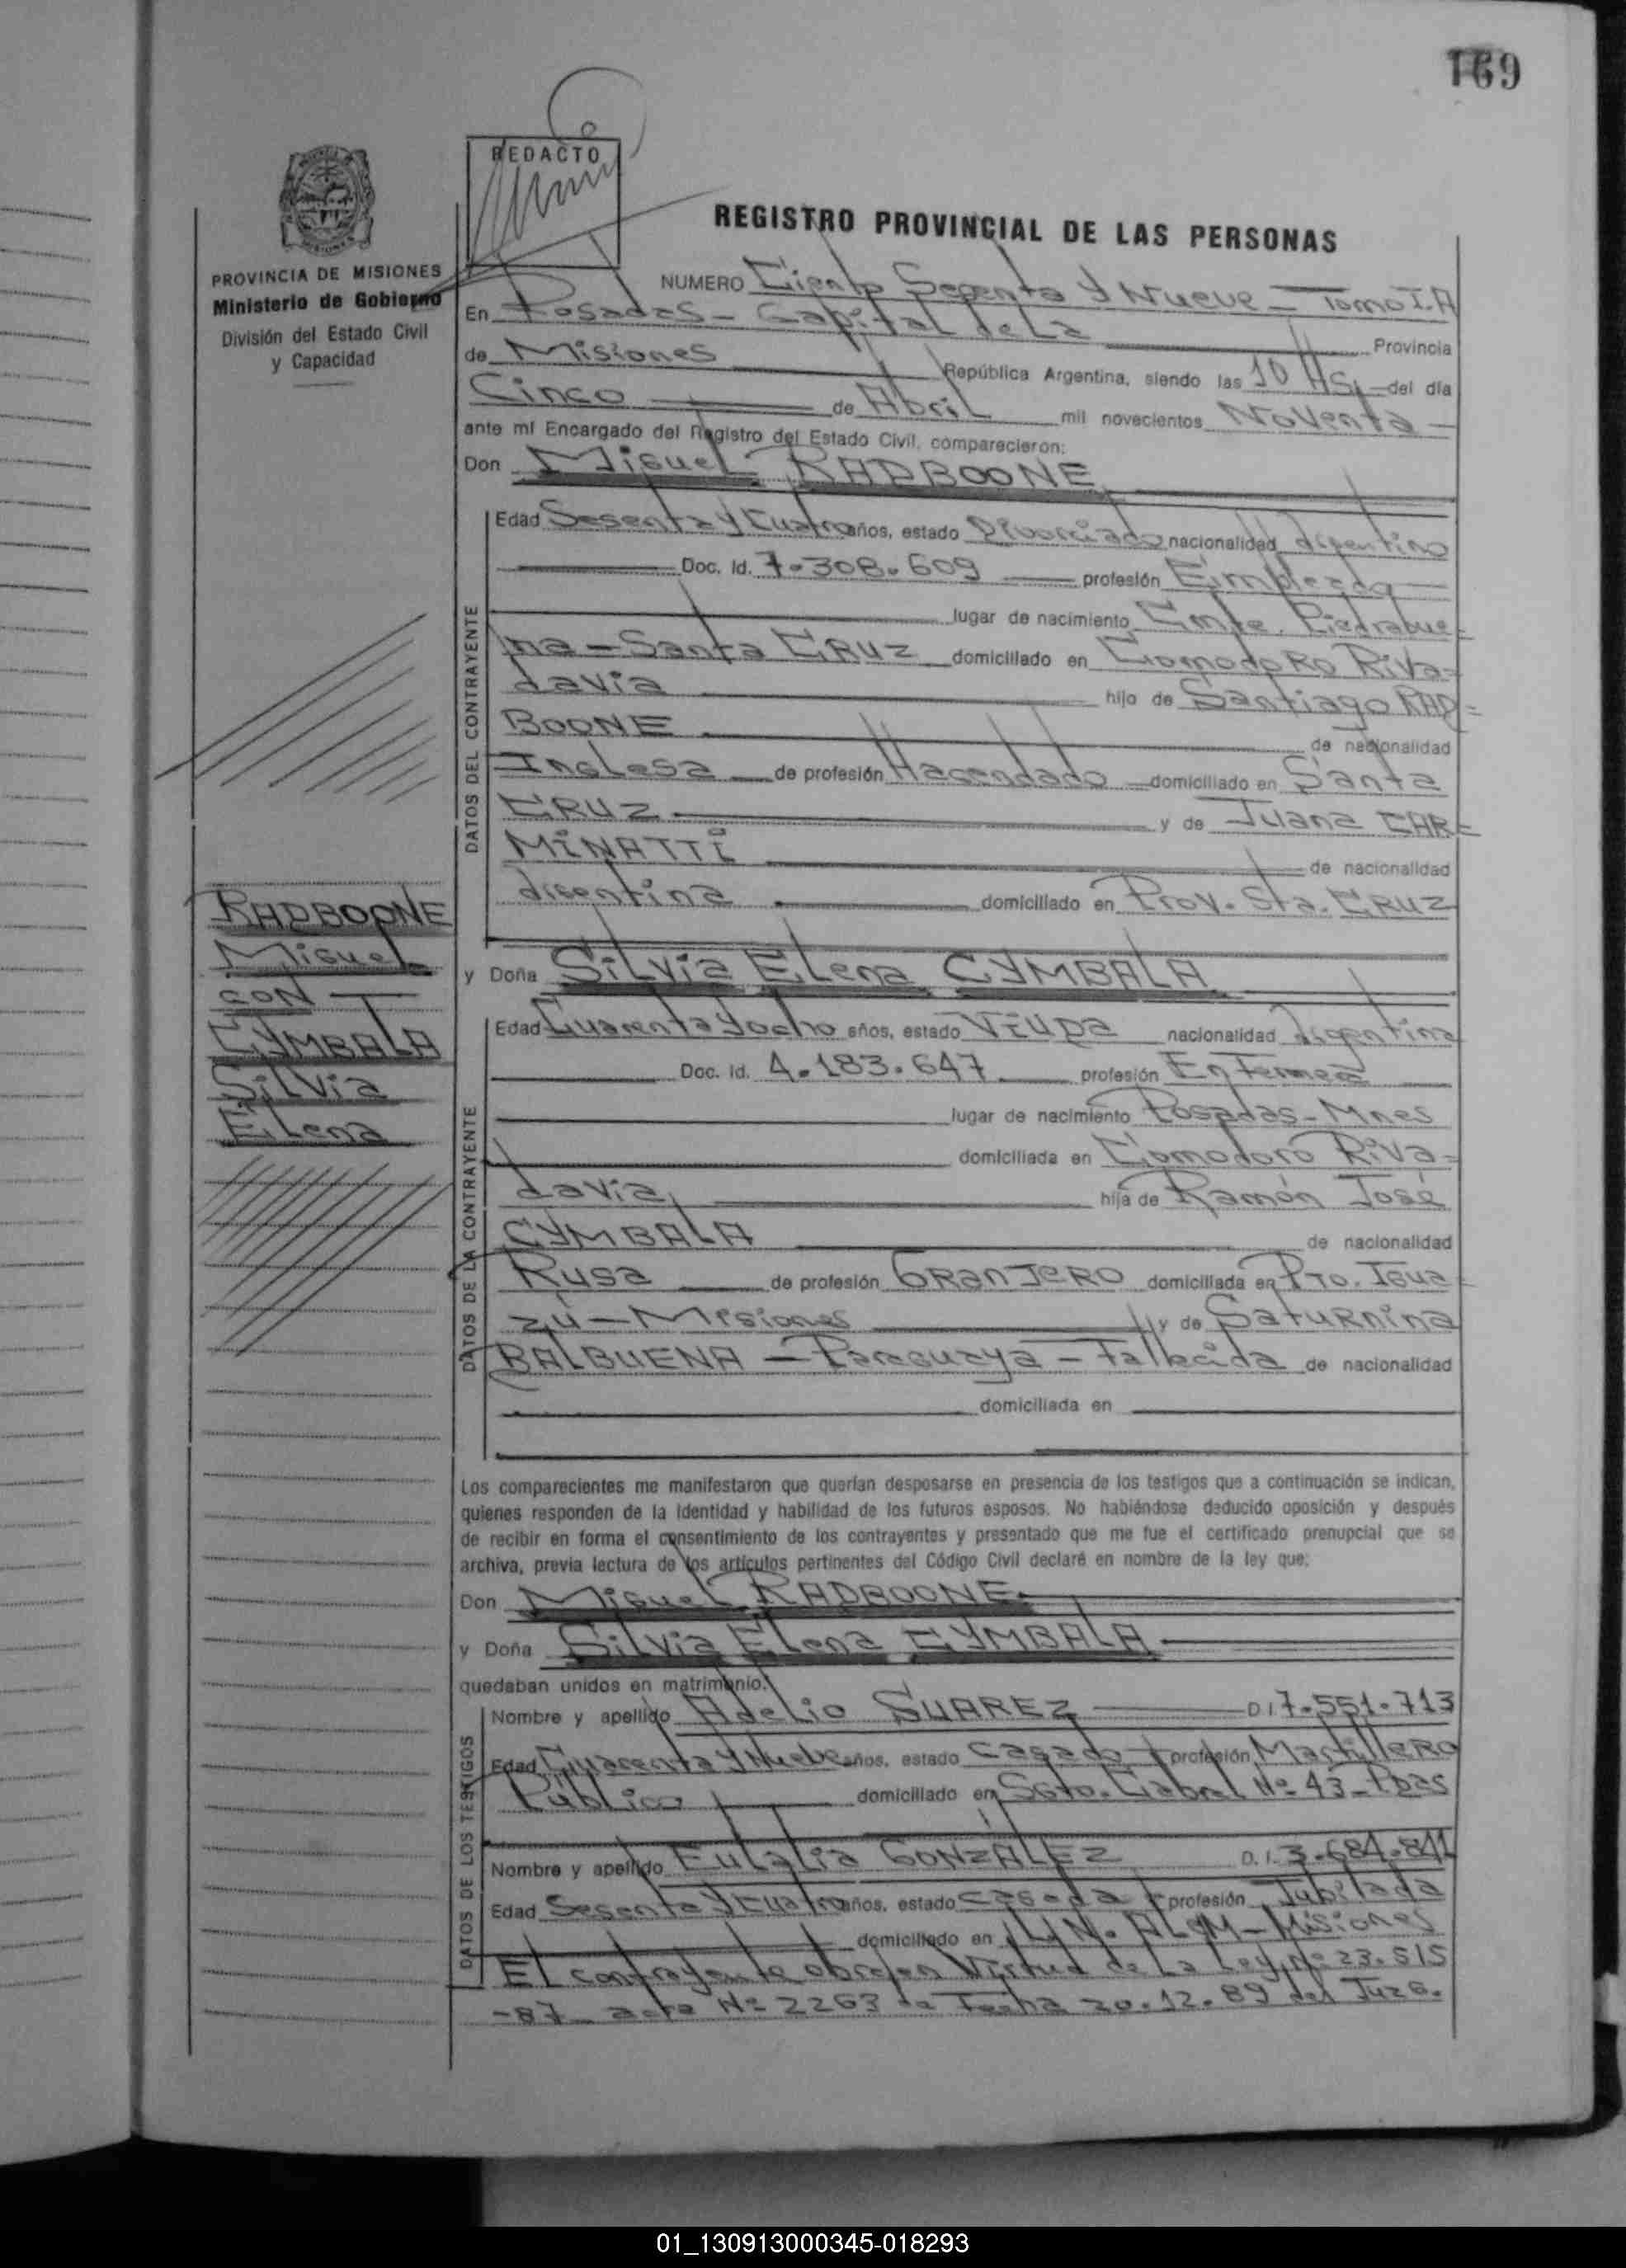 169
REDACTO
REGISTRO PROVINCIAL DE LAS PERSONAS
PROVINCIA DE MISIONES
Ministerio de Gobierno
División del Estado Civil
y Capacidad
NUMERO Ciento Sesenta y Nueve - Tomo I.A
En Posadas - Capital de La Provincia
de Misiones República Argentina, siendo las 10 HS. del día
Cinco de Abril mil novecientos Noventa
ante mí Encargado del Registro del Estado Civil, comparecieron:
Don Miguel RADBOONE
DATOS DEL CONTRAYENTE
Edad Sesenta y Cuatro años, estado Divorciado nacionalidad Argentino
Doc. Id. 7.308.609 profesión Empleado
lugar de nacimiento Cmte. Piedrabue=
na - Santa CRUZ domiciliado en Comodoro Riva=
davia hijo de Santiago RAD=
BOONE de nacionalidad
Inglesa de profesión Hacendado domiciliado en Santa
CRUZ y de Juana CAR=
MINATTI de nacionalidad
Argentina domiciliado en Prov. Sta. CRUZ
RADBOONE
Miguel
CON
CYMBALA
Silvia
Elena
y Doña Silvia Elena CYMBALA
DATOS DE LA CONTRAYENTE
Edad Cuarenta y ocho años, estado Viuda nacionalidad Argentina
Doc. Id. 4.183.647 profesión Enfermera
lugar de nacimiento Posadas - Mnes
domiciliada en Comodoro Riva=
davia hija de Ramón José
CYMBALA de nacionalidad
Rusa de profesión GRANJERO domiciliada en Pto. Igua=
zú - Misiones y de Saturnina
BALBUENA - Paraguaya - Fallecida de nacionalidad
domiciliada en
Los comparecientes me manifestaron que querían desposarse en presencia de los testigos que a continuación se indican,
quienes responden de la identidad y habilidad de los futuros esposos. No habiéndose deducido oposición y después
de recibir en forma el consentimiento de los contrayentes y presentado que me fue el certificado prenupcial que se
archiva, previa lectura de los artículos pertinentes del Código Civil declaré en nombre de la ley que:
Don Miguel RADBOONE
y Doña Silvia Elena CYMBALA
quedaban unidos en matrimonio.
DATOS DE LOS TESTIGOS
Nombre y apellido Adelio SUAREZ D I 7.551.713
Edad Cuarenta y Nueve años, estado Casado profesión Martillero
Público domiciliado en Sgto. Cabral Nº 43 - Pdas
Nombre y apellido Eulalia GONZALEZ D. I. 3.684.841
Edad Sesenta y Cuatro años, estado Casada profesión Jubilada
domiciliado en L.N. ALEM - Misiones
El contrayente obra en Virtud de La Ley Nº 23.515
-87 acta Nº 2263 de Fecha 20.12.89 del Juzg.
01_130913000345-018293